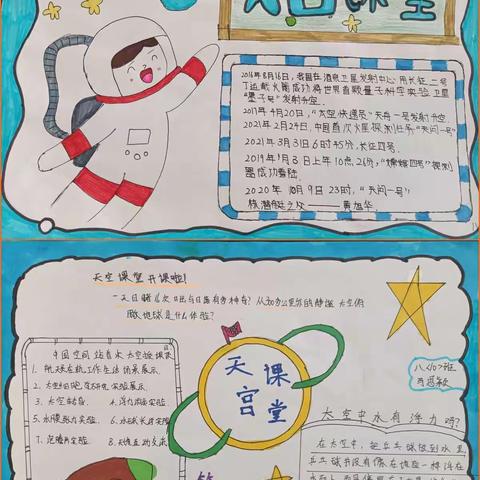 天宫课堂
2016年8月16日，我国在酒泉卫星发射中心用长征二号
丁运载火箭成功将世界首颗量子科学实验卫星
“墨子号”发射升空.
2017年4月20日，“太空快递员”天舟一号发射升空.
2021年2月24日，中国首次火星探测任务“天问一号”
2021年3月31日6时45分，长征四号.
2019年1月3日上午10点26分，“嫦娥四号”探测
器成功着陆.
2020年10月9日23时，“天问一号”
核潜艇之父——黄旭华
天空课堂开课啦！
一天目睹16次日出与日落有多神奇？从400公里外的静谧太空俯
瞰地球是什么体验？
中国空间站首次太空授课
1. 航天员在轨工作生活场景展示.
2. 太空细胞研究实验展示.
3. 太空转身. 4. 浮力消失实验.
5. 水膜张力实验. 6. 水球光学实验
7. 泡腾片实验. 8. 天地互动交流
天宫课堂
八(10)班
太空中水有浮力吗？
在太空中，把乒乓球放到水里，
乒乓球并没有像在地面一样浮在